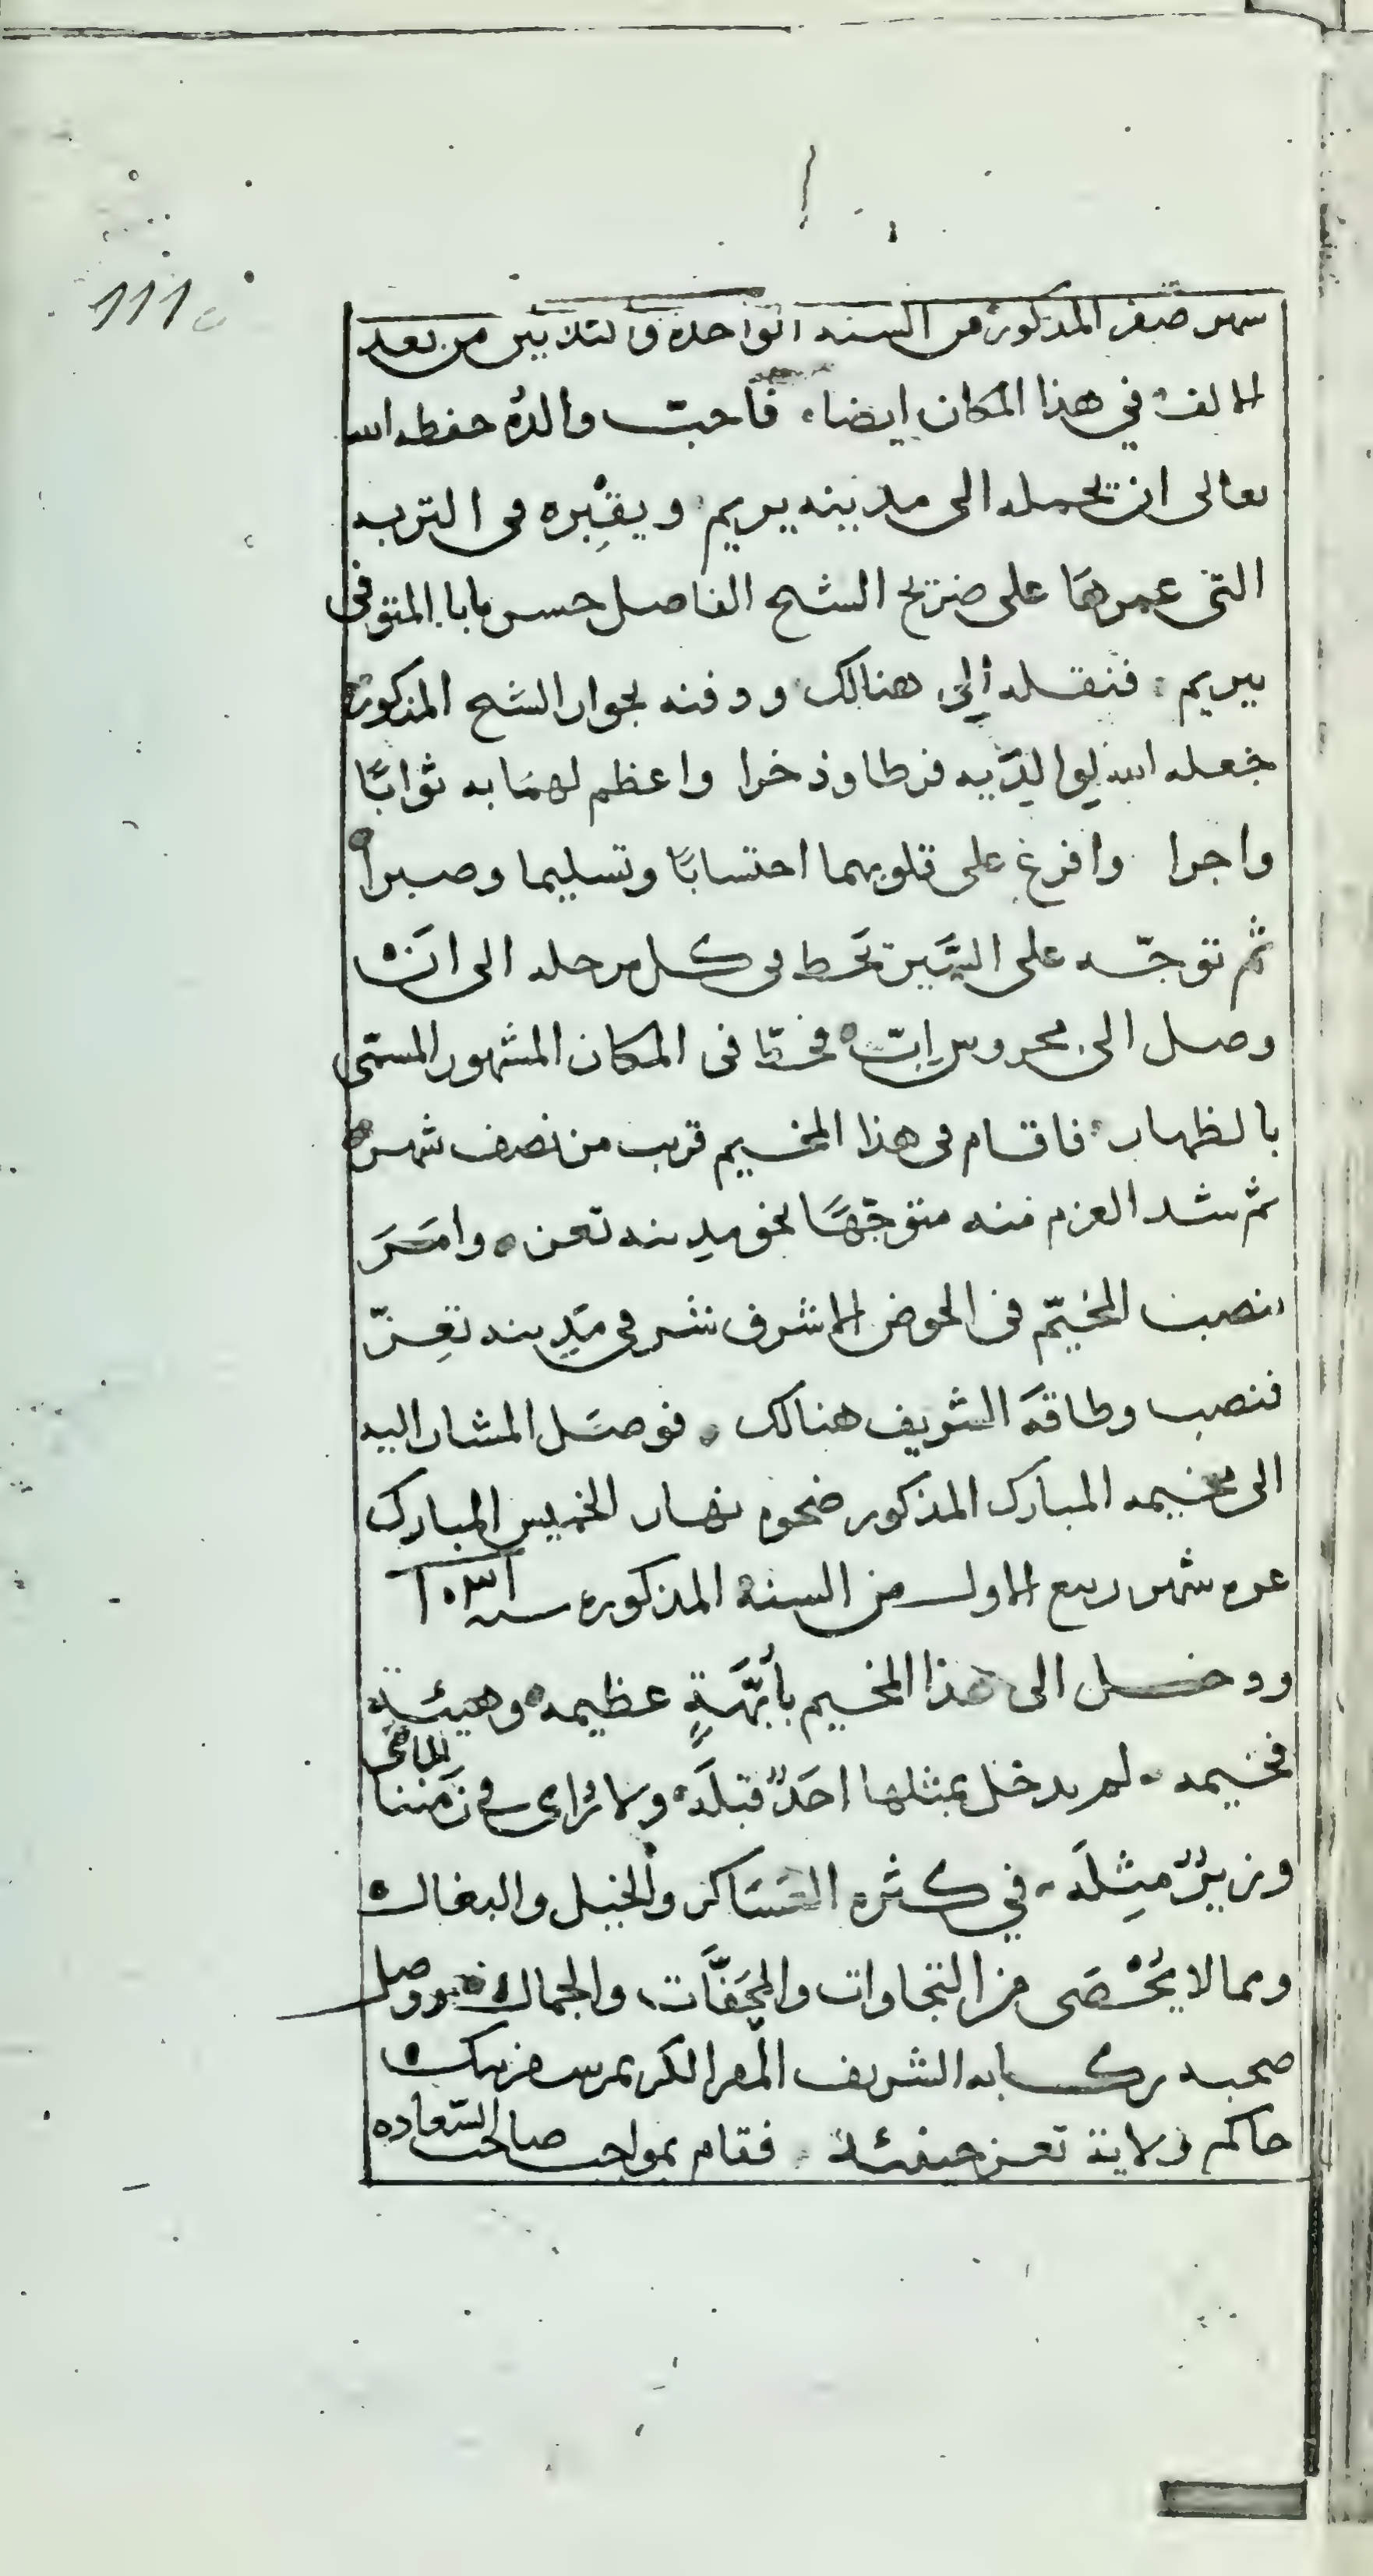 111
شهر صفر المذكور من السنه الواحده والثلاثين من بعد
الالف في هذا المكان ايضا، فاحبّ والدُه حفظه الله
تعالى ان يحمله الى مدينه يريم ويقبِره فى التربه
التى عمرهَا على ضريح الشيخ الفاضل حسن بابا المتوفى
بيريم فنقله إلى هنالك ودفنه بجوار الشيخ المذكور
جعله الله لِوالِدَيه فرطا وذخرا واعظم لهمَا به ثوابًا
واجرا وافرغ على قلوبهما احتسابًا وتسليما وصبراً
ثم توجّه على السَّير تحَط فى كل مرحله الى انْ
وصل الى محروس اِبّ فحطّ فى المكان المشهور المسمّى
بالظهار فاقام فى هذا المخيم قرب من نصف شهر
ثم شد العزم منه متوجّهًا نحو مدينه تعز وامَرَ
بنصب المخيّم فى الحوض الاشرف شرقي مَدينه تعِزّ
فنصب وطاقهَ الشريف هنالك فوصَل المشار اليه
الى مخيمه المبارك المذكور ضحوه نهار الخميس المبارك
غره شهر ربيع الاول من السنة المذكوره سنه ١٠٣١
ودخل الى هذا المخيم بأبَّهَةٍ عظيمه وهيئةٍ
فخيمه لم يدخل بمثلها احَدٌ قبلَه ولا رُاى في زَمننا الماضى
وزيرٌ مِثلَه في كثره العَسَاكر والخيل والبغال
ومما لا يُحْصَى من التجاوات والمِحَفَّات والجمال ووصل
صحبه ركابه الشريف المقر الكريم سفر بيك
حاكم ولاية تعز حينئذ فقام بمواجب صاحب السّعاده